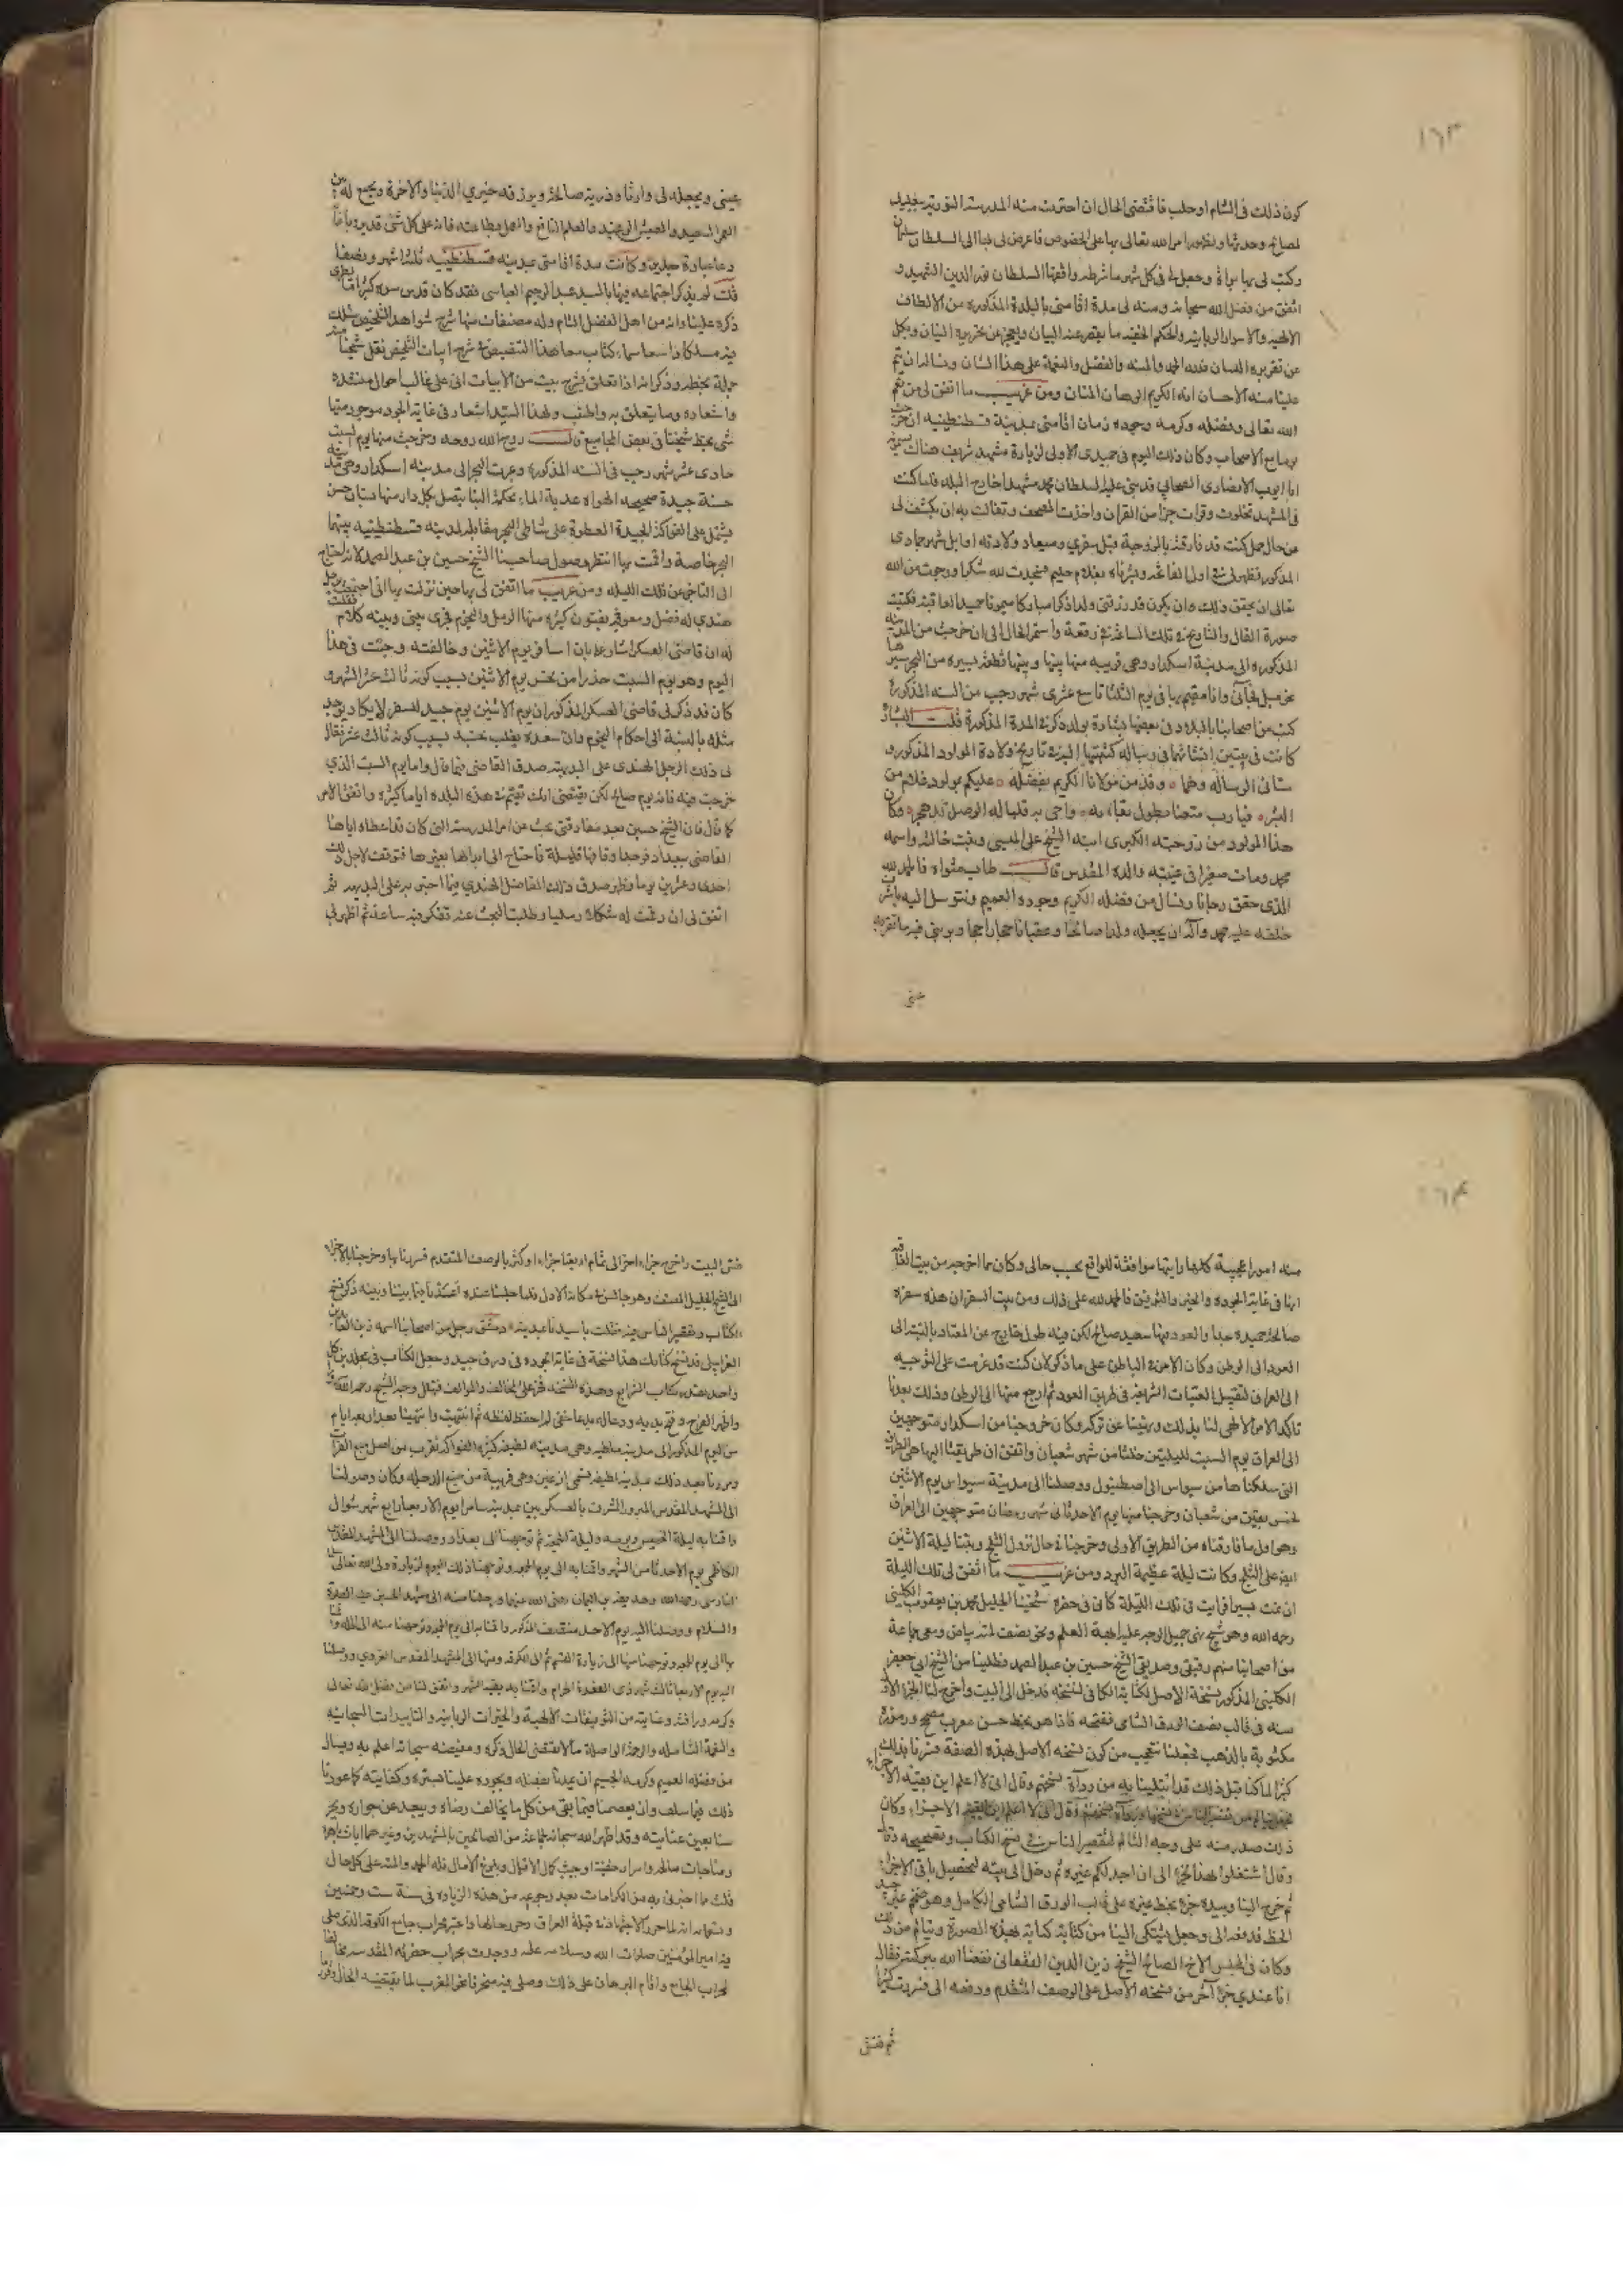 ١٦٣
كون ذلك فى الشام او حلب فاقتضى الحال ان اخترت منه المدرسة النورية ببعلبك
لمصالح وجدتها ولظهور امر الله تعالى بها على الخصوص فاعرض لى بها الى السلطان سليمان
وكتب لى بها براءة وجعل لى فى كل شهر ما شرطه واقفها السلطان نور الدين الشهيد و
اتفق من فضل الله سبحانه ومنه لى مدة اقامتى بالبلدة المذكورة من الالطاف
الالهية والاسرار الربانية والحكم الخفية ما يقصر عنه البيان ويعجز عن تحريره البنان ويكل
عن تقريره اللسان فلله الحمد والمنة والفضل والنعمة على هذا الشان ونساله ان يتم
علينا منه الاحسان انه الكريم الوهاب المنان ومن غريب ما اتفق لى من نعم
الله تعالى وفضله وكرمه وجوده زمان اقامتى بمدينة قسطنطينية ان خرجت
يوما مع الاصحاب وكان ذلك اليوم فى جميدى الاولى لزيارة مشهد شريف هناك يسمونه
ابا ايوب الانصارى الصحابي قد بنى عليه السلطان محمد مشهدا خارج البلد فلما كنت
فى المشهد تخلوت وقرات جزءا من القران واخذت المصحف وتفالت به ان يكشف لى
من حال حمل كنت قد فارقته بالزوجية قبل سفري وميعاد ولادته اوايل شهر جمادى
المذكور فظهر لى فى اول الفاتحة وبشرناه بغلام حليم فسجدت لله شكرا ورجوت من الله
تعالى ان يحقق ذلك وان يكون قد رزقنى ولدا ذكرا مباركا ميمونا حميد العاقبة فكتبت
صورة الفال والتاريخ فى تلك الساعة فى رقعة واستمر الحال الى ان خرجت من المدينة
المذكورة الى مدينة اسكدار وهى قريبة منها بينها وبينها قطعة يسيرة من البحر سيرها
نحو ميل فجاءنى وانا مقيم بها فى يوم الثلثا تاسع عشرى شهر رجب من السنة المذكورة
كتب من اصحابنا بالبلاد فى بعضها بشارة بولد ذكر فى المدة المذكورة قلت البشارة
كانت فى بيتين انشائهما فى رسالة كتبتها اليه فى تاريخ ولادة المولود المذكور و
سائر الرسالة وهما وقد من مولانا الكريم بفضله عليكم بمولود غلام من
البشر فيا رب متعنا بطول بقائه واحى به قلبا له الوصل قد هجر وكان
هذا المولود من زوجته الكبرى ابنة الشيخ على الميسي وهى بنت خالته واسمه
محمد ومات صغيرا فى غيبته والده المقدس قال طاب مثواه فالحمد لله
الذى حقق رجانا ونسال من فضله الكريم وجوده العميم ونتوسل اليه باشرف
خلقه عليه محمد وآله ان يجعله ولدا صالحا وعقبا ناجحا راجحا ويريني فيه ما تقر به
عينى
عينى ويجعله لى وارثا وذرية صالحة ويرزقه خيري الدنيا والاخرة ويجمع له بين
العمر السعيد والعيش الرغيد والعلم النافع والعمل بطاعته فانه على كل شئ قدير
وبالاجابة جدير وكانت مدة اقامتى بمدينة قسطنطينية ثلثة اشهر ونصفا
قلت لم يذكر اجتماعه فيها بالسيد عبد الرحيم العباسى فقد كان قدس سره كثيرا ما يطرى
ذكره علينا وانه من اهل الفضل التام وله مصنفات منها شرح شواهد التلخيص
كتاب معاهد التنصيص فى شرح ابيات التلخيص نقل شيخنا منه
جملة بخطه وذكر انه اذا تعلق بشرح بيت من الابيات اتى على غالب احوال منشده
واشعاره وما يتعلق به واطنب ولهذا السيد اشعار فى غاية الجودة موجود منها
شئ بخط شيخنا فى بعض المجاميع قال روح الله روحه وخرجت منها يوم السبت
حادى عشر شهر رجب فى السنة المذكورة وعبرت البحر الى مدينة اسكدار وهى مدينة
حسنة جيدة صحيحة الهواء عذبة الماء محكمة البنا يتصل بكل دار منها بستان حسن
يشتمل على الفواكة الجيدة العطرة على شاطى البحر مقابلة لمدينة قسطنطينية بينهما
البحر خاصة واقمت بها انتظر وصول صاحبنا الشيخ حسين بن عبد الصمد لانه احتاج
الى التاخر عن تلك الليلة ومن غريب ما اتفق لى بها حين نزلت بها انى اجتمعت برجل
هندي له فضل ومعرفة بفنون كثيرة منها الرمل والنجوم فجرى بينى وبينه كلام فقلت
له ان قاضى العسكر اشار على بان اسافر يوم الاثنين وخالفته وجئت فى هذا
اليوم وهو يوم السبت حذرا من نحس يوم الاثنين بسبب كونه ثالث عشر الشهر و
كان قد ذكر لى قاضى العسكر المذكور ان يوم الاثنين يوم جيد للسفر لا يكاد يوجد
مثله بالنسبة الى احكام النجوم وان سعده يغلب نحسه بسبب كونه ثالث عشر فقال
لى ذلك الرجل الهندى على البديهة صدق القاضى فيما قال واما يوم السبت الذي
خرجت فيه فانه يوم صالح لكن يقتضى انك تقيم فى هذه البلدة اياما كثيرة واتفق الامر
كما قال فان الشيخ حسين بعد مفارقتى بحث عن امر المدرسة التى كان قد اعطاه اياها
القاضى ببغداد فوجد اوقافها قليلة فاحتاج الى ابدالها بغيرها فتوقف لاجل ذلك
احدى وعشرين يوما فظهر صدق ذلك الفاضل الهندي فيما اخبر به على البديهة ثم
اتفق لى ان رفعت له شكلا رمليا وطلبت البحث عنه تفكر فيه ساعة ثم اظهر لى
١٦٤
منه امورا عجيبة كلها رايتها موافقة للواقع بحسب حالى وكان مما اخرجه من بيت العاقبة
انها فى غاية الجودة والخير والتوفيق فالحمد لله على ذلك ومن بيت السفر ان هذه سفرة
صالحة حميدة جدا والعود فيها سعيد صالح لكن فيه طول خارج عن المعتاد بالنسبة الى
العود الى الوطن وكان الامر فى الباطن على ما ذكر لان كنت قد عزمت على التوجه
الى العراق لتقبيل العتبات الشريفة فى طريق العود ثم ارجع منها الى الوطن وذلك بعد ما
تاكد الامر الالهى لنا بذلك ونهينا عن تركه وكان خروجنا من اسكدار متوجهين
الى العراق يوم السبت لليلتين خلتا من شهر شعبان واتفق ان طريقنا اليها هى الطريق
التى سلكناها من سيواس الى اصطنبول ووصلنا الى مدينة سيواس يوم الاثنين
لخمس بقين من شعبان وخرجنا منها يوم الاحد ثانى شهر رمضان متوجهين الى العراق
وهو اول ما فارقناه من الطريق الاولى وخرجنا فى حال نزول الثلج وبتنا ليلة الاثنين
ايضا على الثلج وكانت ليلة عظيمة البرد ومن غريب ما اتفق لى تلك الليلة
ان نمت يسيرا فرايت فى تلك الليلة كانى فى حضرة شيخنا الجليل محمد بن يعقوب الكلينى
رحمه الله وهو شيخ بهى جميل الوجه عليه ابهة العلم ونحو نصف لمته بياض ومعى جماعة
من اصحابنا منهم رفيقى وصديقى الشيخ حسين بن عبد الصمد فطلبنا من الشيخ ابى جعفر
الكلينى المذكور نسخة الاصل لكتابه الكافى لننسخه فدخل الى البيت واخرج لنا الجزء الاول
منه فى قالب نصف الورق الشامى ففتحه فاذا هو بخط حسن معرب مصحح ورموزه
مكتوبة بالذهب فجعلنا نتعجب من كون نسخة الاصل بهذه الصفة فسررنا بذلك
كثيرا لما كنا قبل ذلك قد ابتلينا به من رداءة النسخ
وقال انى لا اعلم اين بقية الاجزاء وكان
ذلك صدر منه على وجه التالم لتقصير الناس فى نسخ الكتاب وتصحيحه
وقال اشتغلوا بهذا الجزء الى ان اجد لكم غيره ثم دخل الى بيته لتحصيل باقى الاجزاء
ثم خرج الينا وبيده جزء بخط غيره على قالب الورق الشامى الكامل وهو ضخم غير جيد
الخط فدفعه الى وجعل يشتكى الينا من كتابة كتابه بهذه الصورة ويتالم من ذلك
وكان فى المجلس الاخ الصالح الشيخ زين الدين الفقعانى نفعنا الله ببركته فقال
انا عندي جزء آخر من نسخة الاصل على الوصف المتقدم ودفعه الى فسررت كثيرا
ثم فتش
فتش البيت واخرج جزءا اخر الى تمام اربعة اجزاء او اكثر بالوصف المتقدم فسررنا بها وخرجنا بالاجزاء
الى الشيخ الجليل المصنف وهو جالس فى مكانه الاول فلما جلسنا عنده اعدنا فيما بيننا وبينه ذكر نسخ
الكتاب وتقصير الناس فيه فقلت يا سيدنا بمدينة دمشق رجل من اصحابنا اسمه زين العابدين
الغرابيلى قد نسخ كتابك هذا نسخة فى غاية الجودة فى ورق جيد وجعل الكتاب فى مجلدين كل
واحد بقدر كتاب الشرايع وهذه النسخة فخر على المخالف والموالف فتهلل وجه الشيخ رحمه الله سرورا
واظهر الفرح وفتح يديه ودعا له بدعاء خفى لم احفظ لفظه ثم انتبهت وانتهينا بعد اربعة ايام
من اليوم المذكور الى مدينة ملطيه وهى مدينة لطيفة كثيرة الفواكه تقرب من اصل منبع الفرات
ومررنا بعد ذلك بمدينة لطيفة تسمى ازغين وهى قريبة من منبع الدجلة وكان وصولنا
الى المشهد المقدس المبرور المشرف بالعسكريين بمدينة سامرا يوم الاربعا رابع شهر شوال
واقمنا به ليلة الخميس ويومه وليلة الجمعة ثم توجهنا الى بغداد ووصلنا الى المشهد المقدس
الكاظمى يوم الاحد ثامن الشهر واقمنا به الى يوم الجمعة وتوجهنا ذلك اليوم لزيارة ولى الله تعالى سلمان
الفارسى رحمه الله وحذيفة بن اليمان رضى الله عنهما ورحلنا منه الى مشهد الحسين عليه الصلوة
والسلام ووصلنا اليه يوم الاحد منتصف الشهر المذكور واقمنا به الى يوم الجمعة وتوجهنا منه الى الحلة واقمنا
بها الى يوم الجمعة وتوجهنا منها الى زيارة القسم ثم الى الكوفة ومنها الى المشهد المقدس الغروي ووصلنا
اليه يوم الاربعا ثالث شهر ذى القعدة الحرام واقمنا به بقية الشهر واتفق لنا من فضل الله تعالى
وكرمه ورافته وعنايته من التوفيقات الالهية والخيرات الربانية والتاييدات السبحانية
والنعمة الشاملة والرحمة الواصلة ما لا يقتضى الحال ذكره ومفيضه سبحانه اعلم به ونسال
من فضله العميم وكرمه الجسيم ان يمدنا بفضله ويجوده علينا بستره وكفايته كما عودنا
ذلك فيما سلف وان يعصمنا فيما بقى من كل ما يخالف رضاه ويبعد عن جواره
بعين عنايته وقد اظهر الله سبحانه لجماعة من الصالحين بالمشهدين وغيرهما ايات باهرة
ومناجات صالحة واسرار خفية اوجبت كمال الاقبال وبلوغ الامال فله الحمد والمنة على كل حال
قلت مما اخبرنى به من الكرامات بعد رجوعه من هذه الزيارة فى سنة ست وخمسين
وتسعمائة انه لما حرر الاجتهاد فى قبلة العراق وحقق حالها واعتبر محراب جامع الكوفة الذى صلى
فيه امير المؤمنين صلوات الله وسلامه عليه ووجد محراب حضرته المقدسة مخالفا
لمحراب الجامع واقام البرهان على ذلك وصلى فيه منحرفا نحو المغرب لما يقتضيه الحال